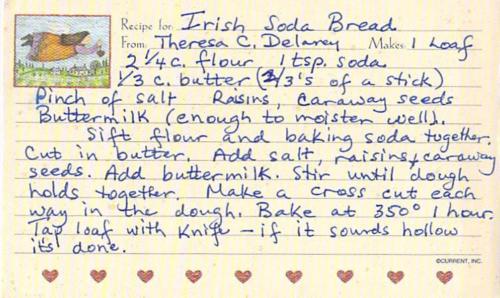 Recipe for Irish Soda Bread
From Theresa C. Delaney Makes 1 Loaf
2 1/4 c. flour 1 tsp. soda
1/3 c. butter (2/3's of a stick)
Pinch of salt Raisins, caraway seeds
Buttermilk (enough to moisten well).
Sift flour and baking soda together.
Cut in butter. Add salt, raisins, caraway
seeds. Add buttermilk. Stir until dough
holds together. Make a cross cut each
way in the dough. Bake at 350° 1 hour.
Tap loaf with knife - if it sounds hollow
it's done.
©CURRENT, INC.